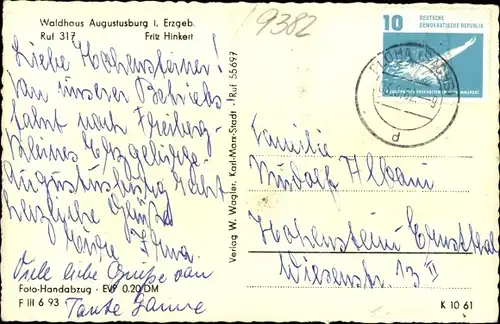 Waldhaus Augustusburg i. Erzgeb.
Ruf 317 Fritz Hinkert
9382
Liebe Hohensteiner!
Von unserer Betriebs
fahrt nach Freiberg-
kleines Erzgebirge-
Augustusburg recht
herzliche Grüße
Eure Irma.
Viele liebe Grüße von
Tante
Foto-Handabzug · EVP 0.20 DM
F III 6 93
Verlag W. Wagler, Karl-Marx-Stadt · Ruf 55697
10 DEUTSCHE
DEMOKRATISCHE REPUBLIK
d
Familie
Rudolf Albani
Hohenstein-Ernstthal
Wiesenstr. 13 II
K 10 61